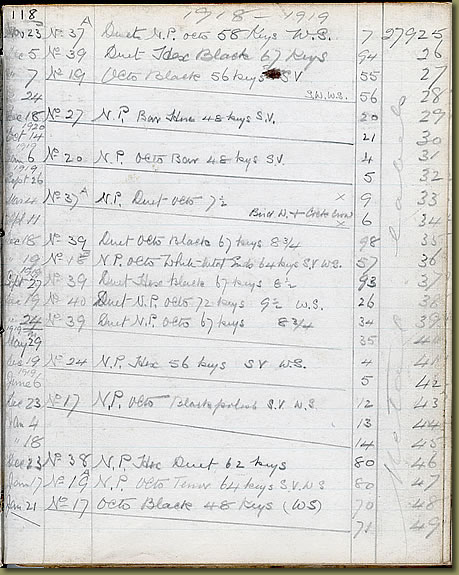 118 1918 - 1919
Nov 23 No 37 A Duet N.P. octo 58 Keys W.S. 7 27925
Dec 5 No 39 Duet Hex Black 67 Keys 94 26
7 No 19 Octo Black 56 keys SV 55 27
24 S.V. W.S. 56 28
Dec 18 No 27 N.P. Bar Hex 48 keys S.V. 20 29
1920
Oct 14 21 30
1919
Jan 6 No 20 N.P. Octo Bar 48 keys SV. 4 31
1919
Sept 26 5 32
No 37 A N.P. Duet octo 7½ x 9 33
Sept 11 x 6 34
Dec 18 No 39 Duet Octo Black 67 keys 8¾ 98 35
19 No 18 N.P. Octo 64 keys S.V. W.S. 57 36
Sept 27 No 39 Duet Hex black 67 keys 8½ 93 37
19 No 40 Duet N.P. Octo 72 keys 9½ W.S. 26 38
24 No 39 Duet N.P. Octo 67 keys 8¾ 34 39
May 29 35 40
19 No 24 N.P. Hex 56 keys SV W.S. 4 41
June 6 5 42
Dec 23 No 17 N.P. Octo Black polish S.V. W.S. 12 43
Jan 4 13 44
" 18 14 45
Dec 23 No 38 N.P. Hex Duet 62 keys 80 46
Jan 17 No 19 A N.P. Octo Tenor 64 keys S.V. W.S 80 47
Jan 21 No 17 Octo Black 48 Keys (WS) 70 48
71 49